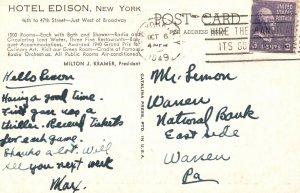 HOTEL EDISON, NEW YORK
46th to 47th Street—Just West of Broadway
1000 Rooms—Each with Bath and Shower—Radio and
Circulating Iced Water. Three Fine Restaurants—Ban-
quet Accommodations. Awarded 1940 Grand Prix for
Culinary Art. Visit our Green Room—Cradle of Famous
Radio Orchestras. All Public Rooms Air-Conditioned.
MILTON J. KRAMER, President
Hello
Having a good time.
First game was a
thriller. Received tickets
for each game.
Thanks a lot. Will
see you next week
Max.
CAROLINE PRESS, PTD. IN U.S.
POST CARD
ADDRESS
OCT 6
4 PM
1949
HIRE THE
ITS GO
3 CENTS 3
Mr. Lemon
Warren
National Bank
East side
Warren
Pa